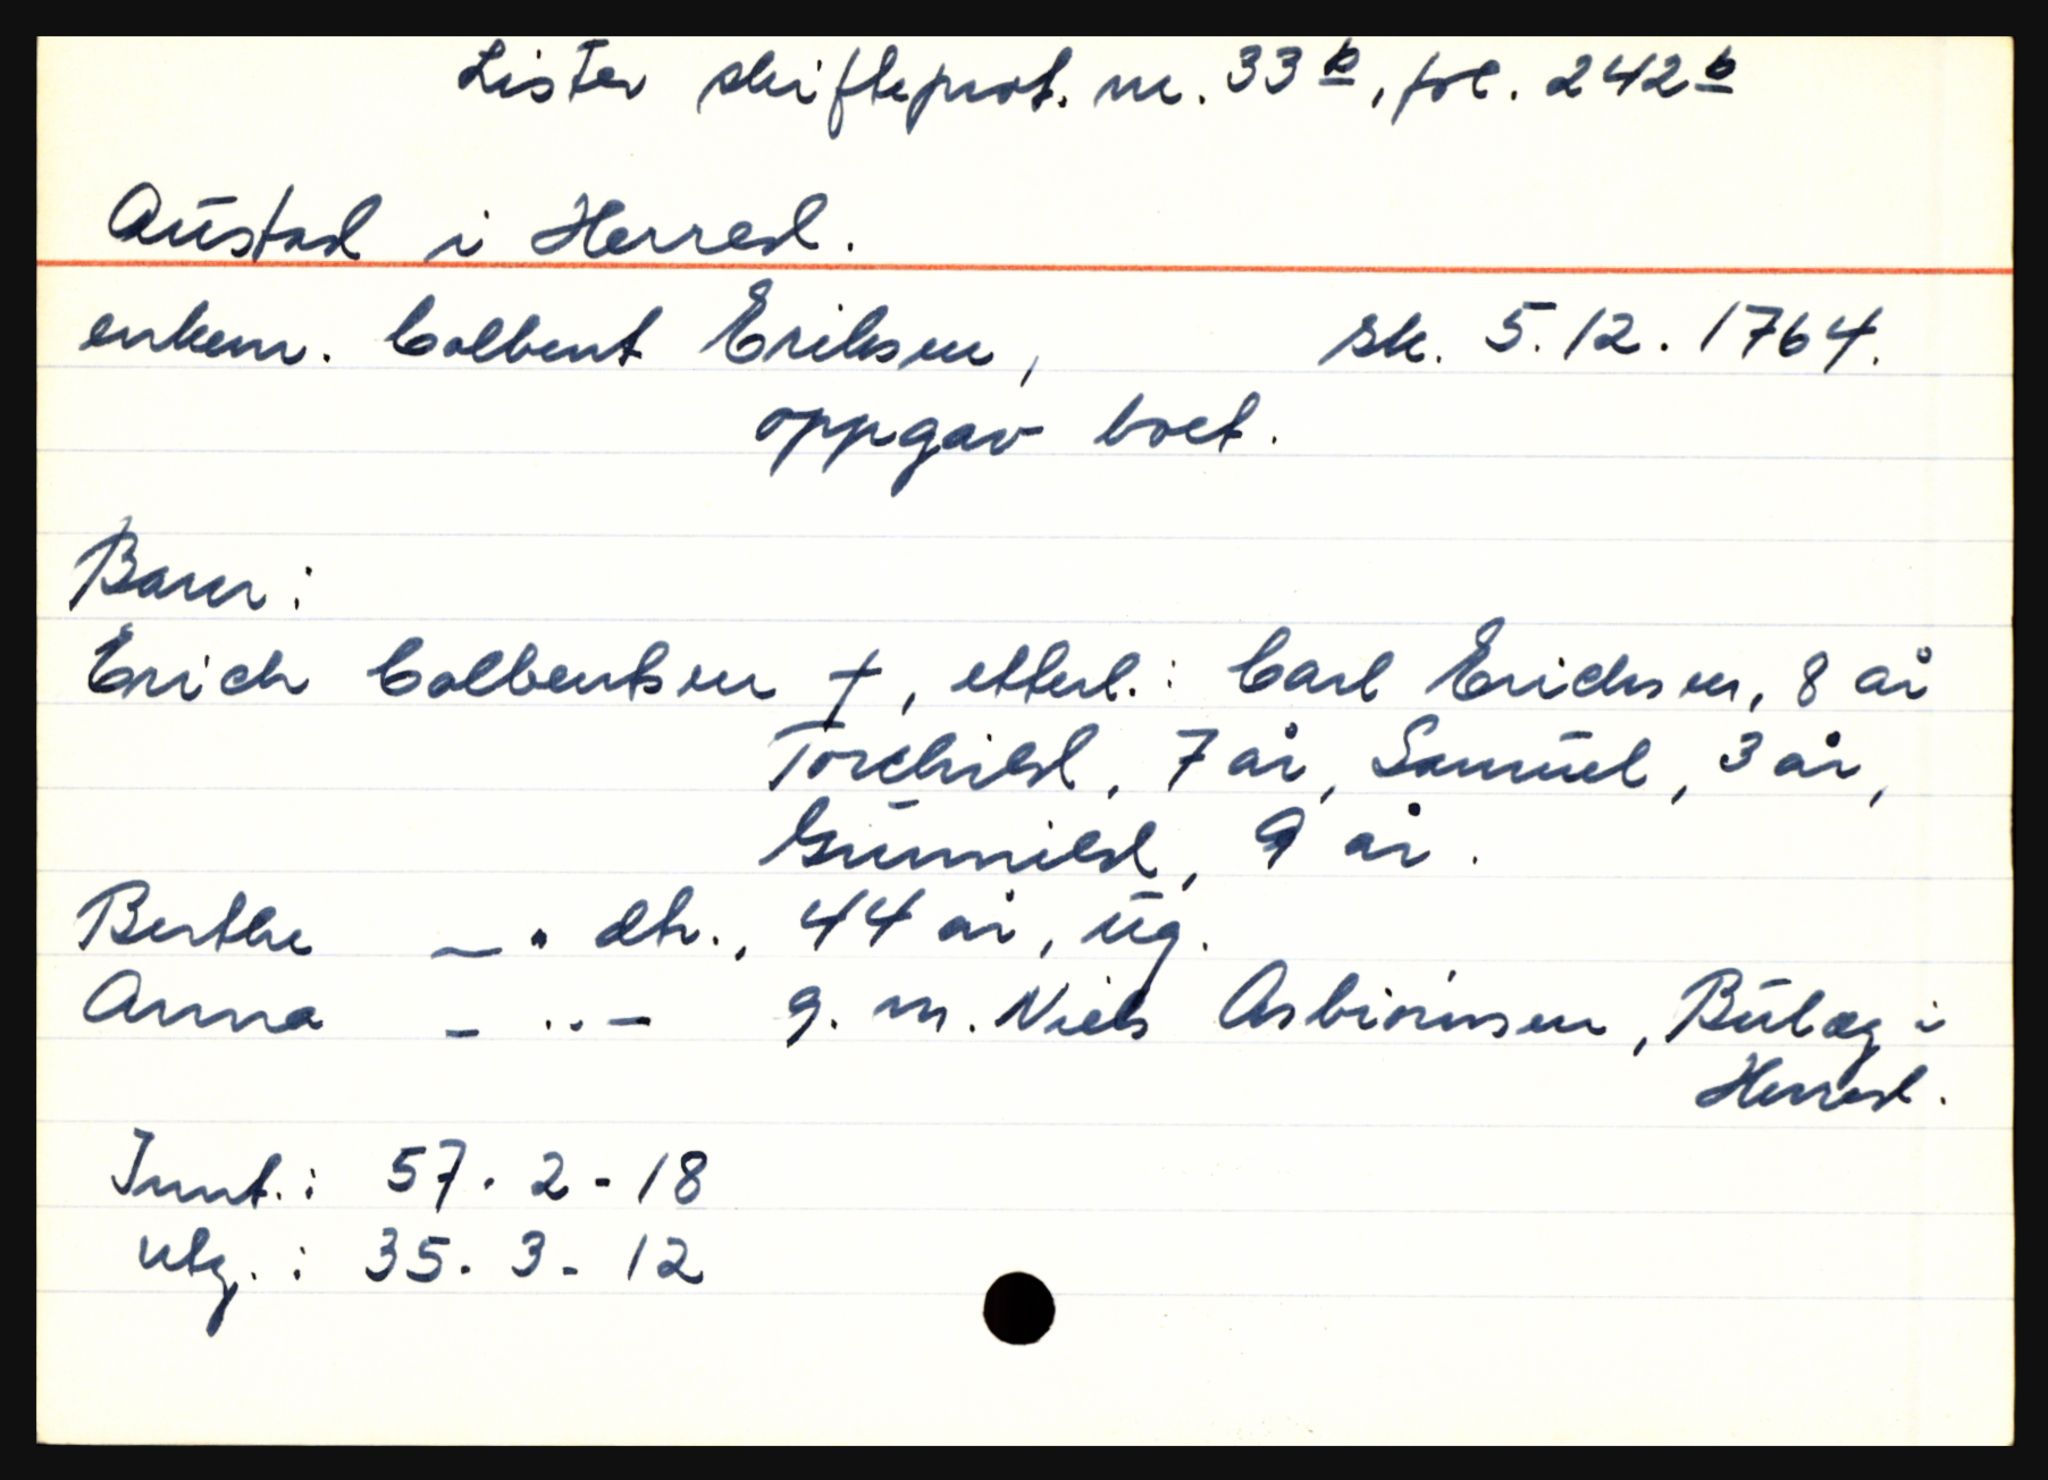 Lister skifteprot. nr. 33 b, fol. 242 b
Austad i Herred.
enkem. Colbent Eriksen, sk. 5.12.1764.
oppgav boet.
Barn:
Erich Colbentsen †, etterl.: Carl Erichsen, 8 år
Torchild, 7 år, Samuel, 3 år,
Gunnild, 9 år.
Berthe — " dtr., 44 år, ug.
Anna - " - g. m. Niels Asbiørnsen, Bulæg i
Herred.
Innt.: 57 - 2 - 18
utg.: 35 - 3 - 12